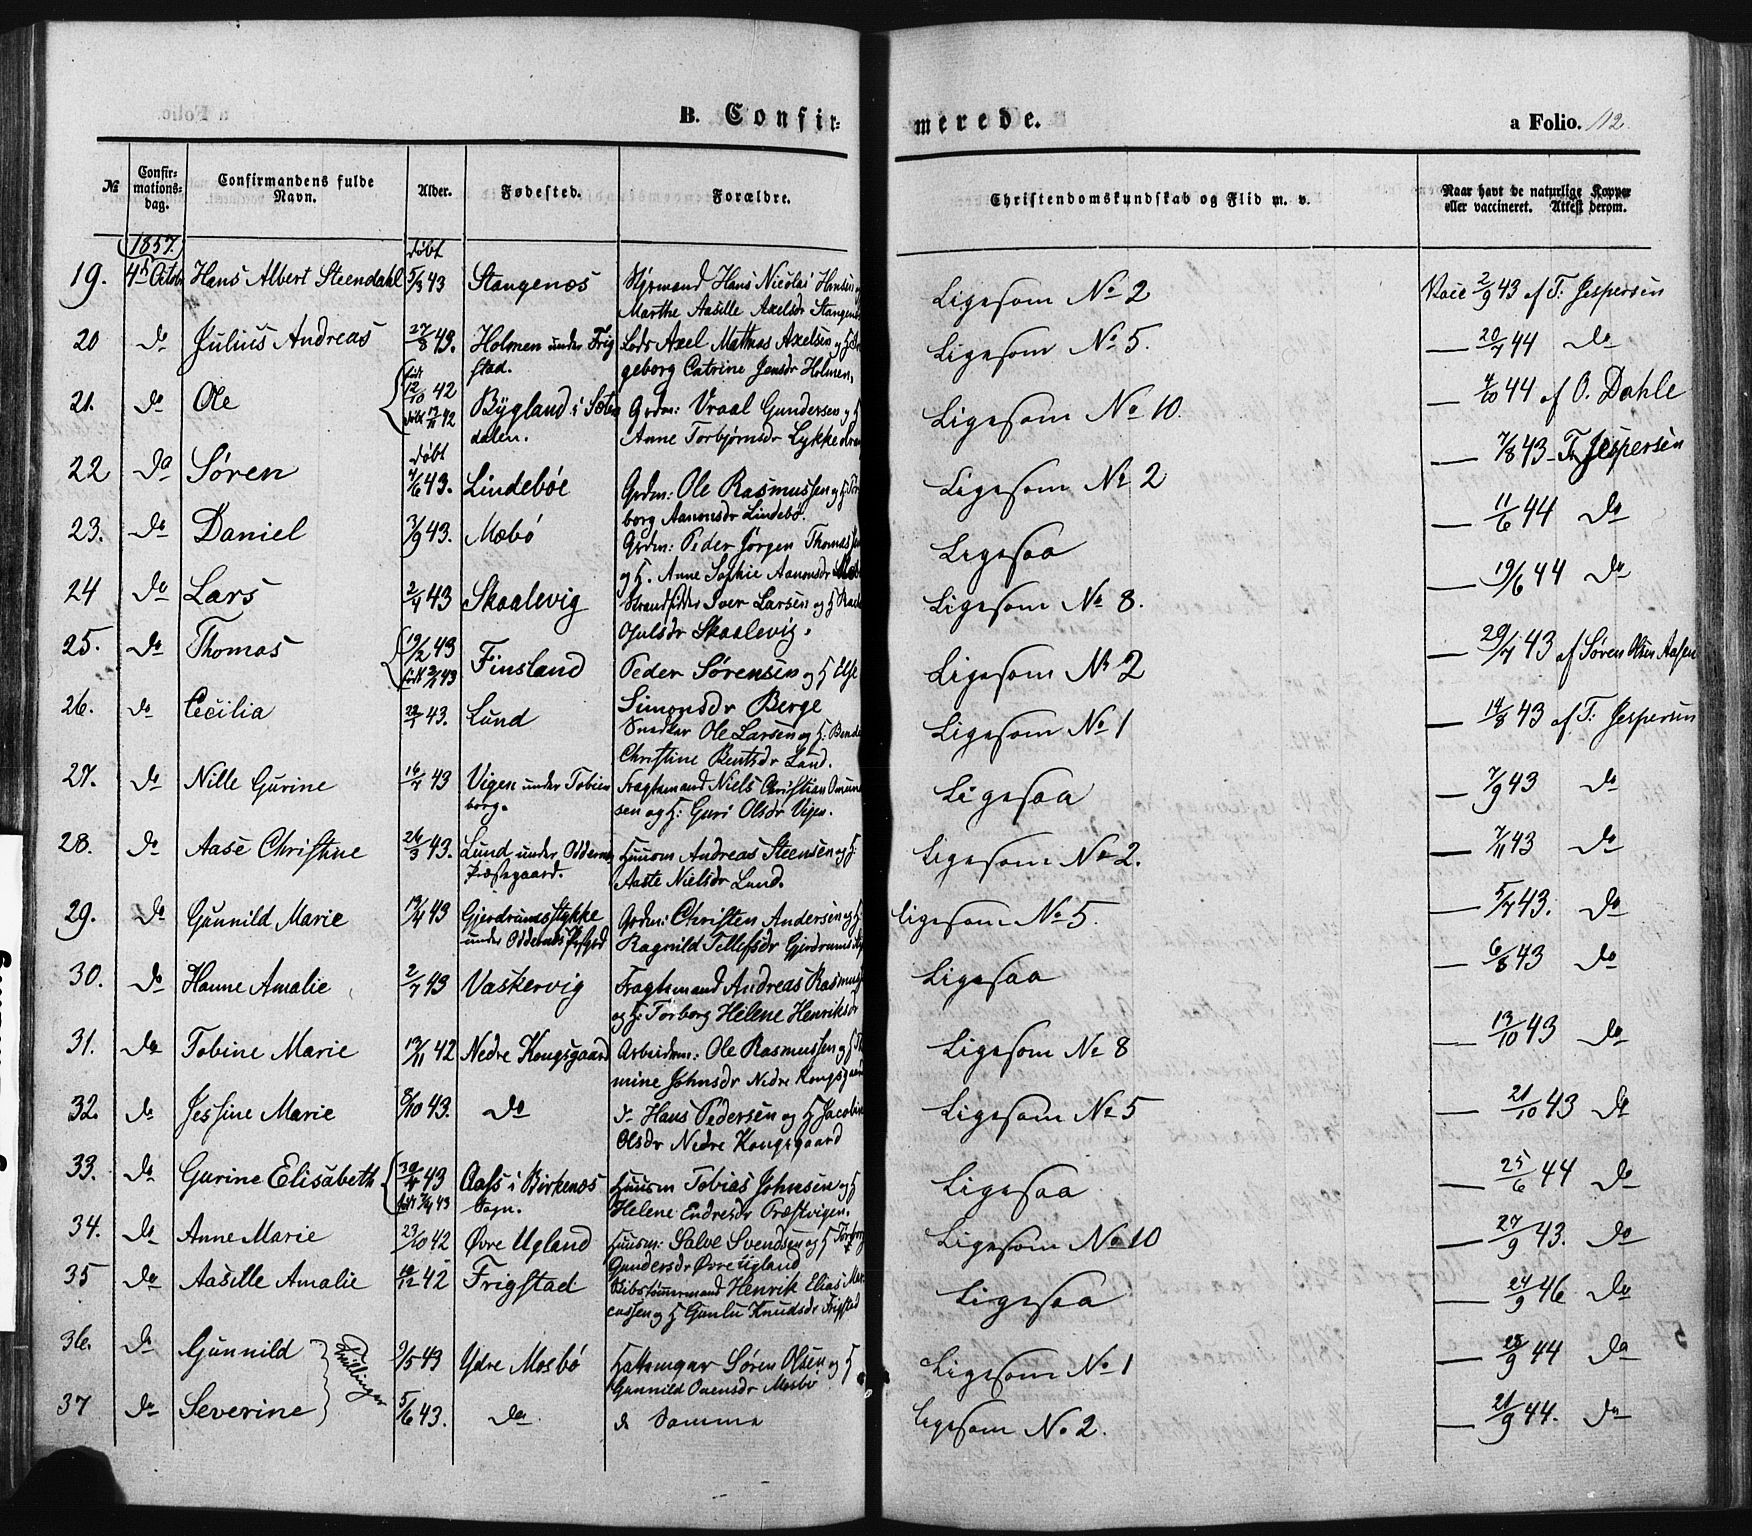 B. Confir-
merede.
a Folio. 112.
№
Confir-
mations-
dag.
Confirmandens fulde
Navn.
Alder.
Fødested.
Forældre.
Christendomskundskab og Flid m. v.
Naar havt de naturlige Kopper
eller vaccineret. Attest derom.
1857.
døbt
19. 4de Octbr Hans Albert Steendahl 5/3 43 Stangenæs Styrmand Hans Nicolai Hansen og
Marthe Aasille Axelsdr Stangenæs
Ligesom No 2 Vacc 2/9 43 af T: Jespersen
20 do Julius Andreas 27/8 43. Holmen under Frig Lods Axel Mathias Axelsen og H
stad. geborg Catrine Jensdr Holmen.
Ligesom No 5. — 20/7 44 do
født
21. do Ole 12/10 42 Bygland i Sæters Grdm: Vraal Gundersen og H
dalen. Anne Torbjørnsdr Lykke
Ligesom No 10. — 4/10 44 af O. Dahle
døbt
22 do Søren 4/6 43. Lindebøe Grdm: Ole Rasmussen og H Tor
borg Aanonsdr Lindebø.
Ligesom No 2 — 7/8 43 - T. Jespersen
23. do Daniel 3/9 43. Mæbø Grdm: Peder Jørgen Thomassen
og H. Anne Sophie Aanonsdr
Ligesaa — 11/6 44 do
24 do Lars 2/4 43 Skaalevig Strandsidder Iver Larsen og H
Skaalevig.
Ligesom No 8. — 19/6 44 do
25. do Thomas 19/2 43 Finsland Peder Sørensen og H Else
Simonsdr Berge
Ligesom No 2 — 20/7 43 af Søren Olsen Aasen
26. do Cecilia 43. Lund Snedker Ole Larsen og H: Bende
Christine Bentsdr Lund.
Ligesom No 1 — 14/8 43 af T: Jespersen
27. do Nille Gurine 16/7 43 Vigen under Tobien Fragtemand Niels Christian Omund
borg. sen og H: Guri Olsdr Vigen.
Ligesaa — 7/9 43 do
28. do Aase Christine 26/3 43. Lund under Oddernes Huusm Andreas Steensen og H:
Præstegaard. Aaste Nielsdr Lund.
Ligesom No 2. — 7/11 43 do
29. do Gunnild Marie 17/4 43 Gjerdrumsstykke Grdm: Christen Andersen og H
under Oddernes Ragnild Tellefsdr
Ligesom No 5. — 5/7 43. do
30. do Hanne Amalie 2/7 43 Vaskervig Fragtemand Andreas Rasmus
og H: Torborg Helene Henriksdr
Ligesaa — 6/8 43 do
31. do Tobine Marie 13/11 42 Nedre Kongsgaard Arbeidsm: Ole Rasmussen og H
mine Johnsdr Nedre Kongsgaard
Ligesom No 8 — 13/10 43 do
32. do Jessine Marie 8/10 43. do do Hans Pedersen og H Jacobine
Olsdr Nedre Kongsgaard
Ligesom No 5 — 21/10 43 do
33. do Gurine Elisabeth 30/4 43 Aass i Birkenæs Huusm Tobias Johnsen og H
Sogn. Helene Endresdr Præstvigen.
Ligesaa — 25/6 44 do
34. do Anne Marie 23/10 42 Øvre Ugland Huusm: Salve Svendsen og H Torborg
Gundersdr Øvre Ugland
Ligesom No 10 — 27/9 43. do
35 do Aasille Amalie 42 Frigstad Skibstømmermand Henrik Elias Mar
cussen og H Gunlu Knudsdr Frigstad
Ligesaa — 24/9 46 do
36. do Gunnild Tvillinger 9/5 43 Ydre Mosbø Hattemager Søren Olsen og H
Gunnild Ovensdr Mosbø
Ligesom No 1 — 28/9 44 do
37 do Severine 5/6 43. do de Samme
Ligesom No 2. — 21/9 44. do